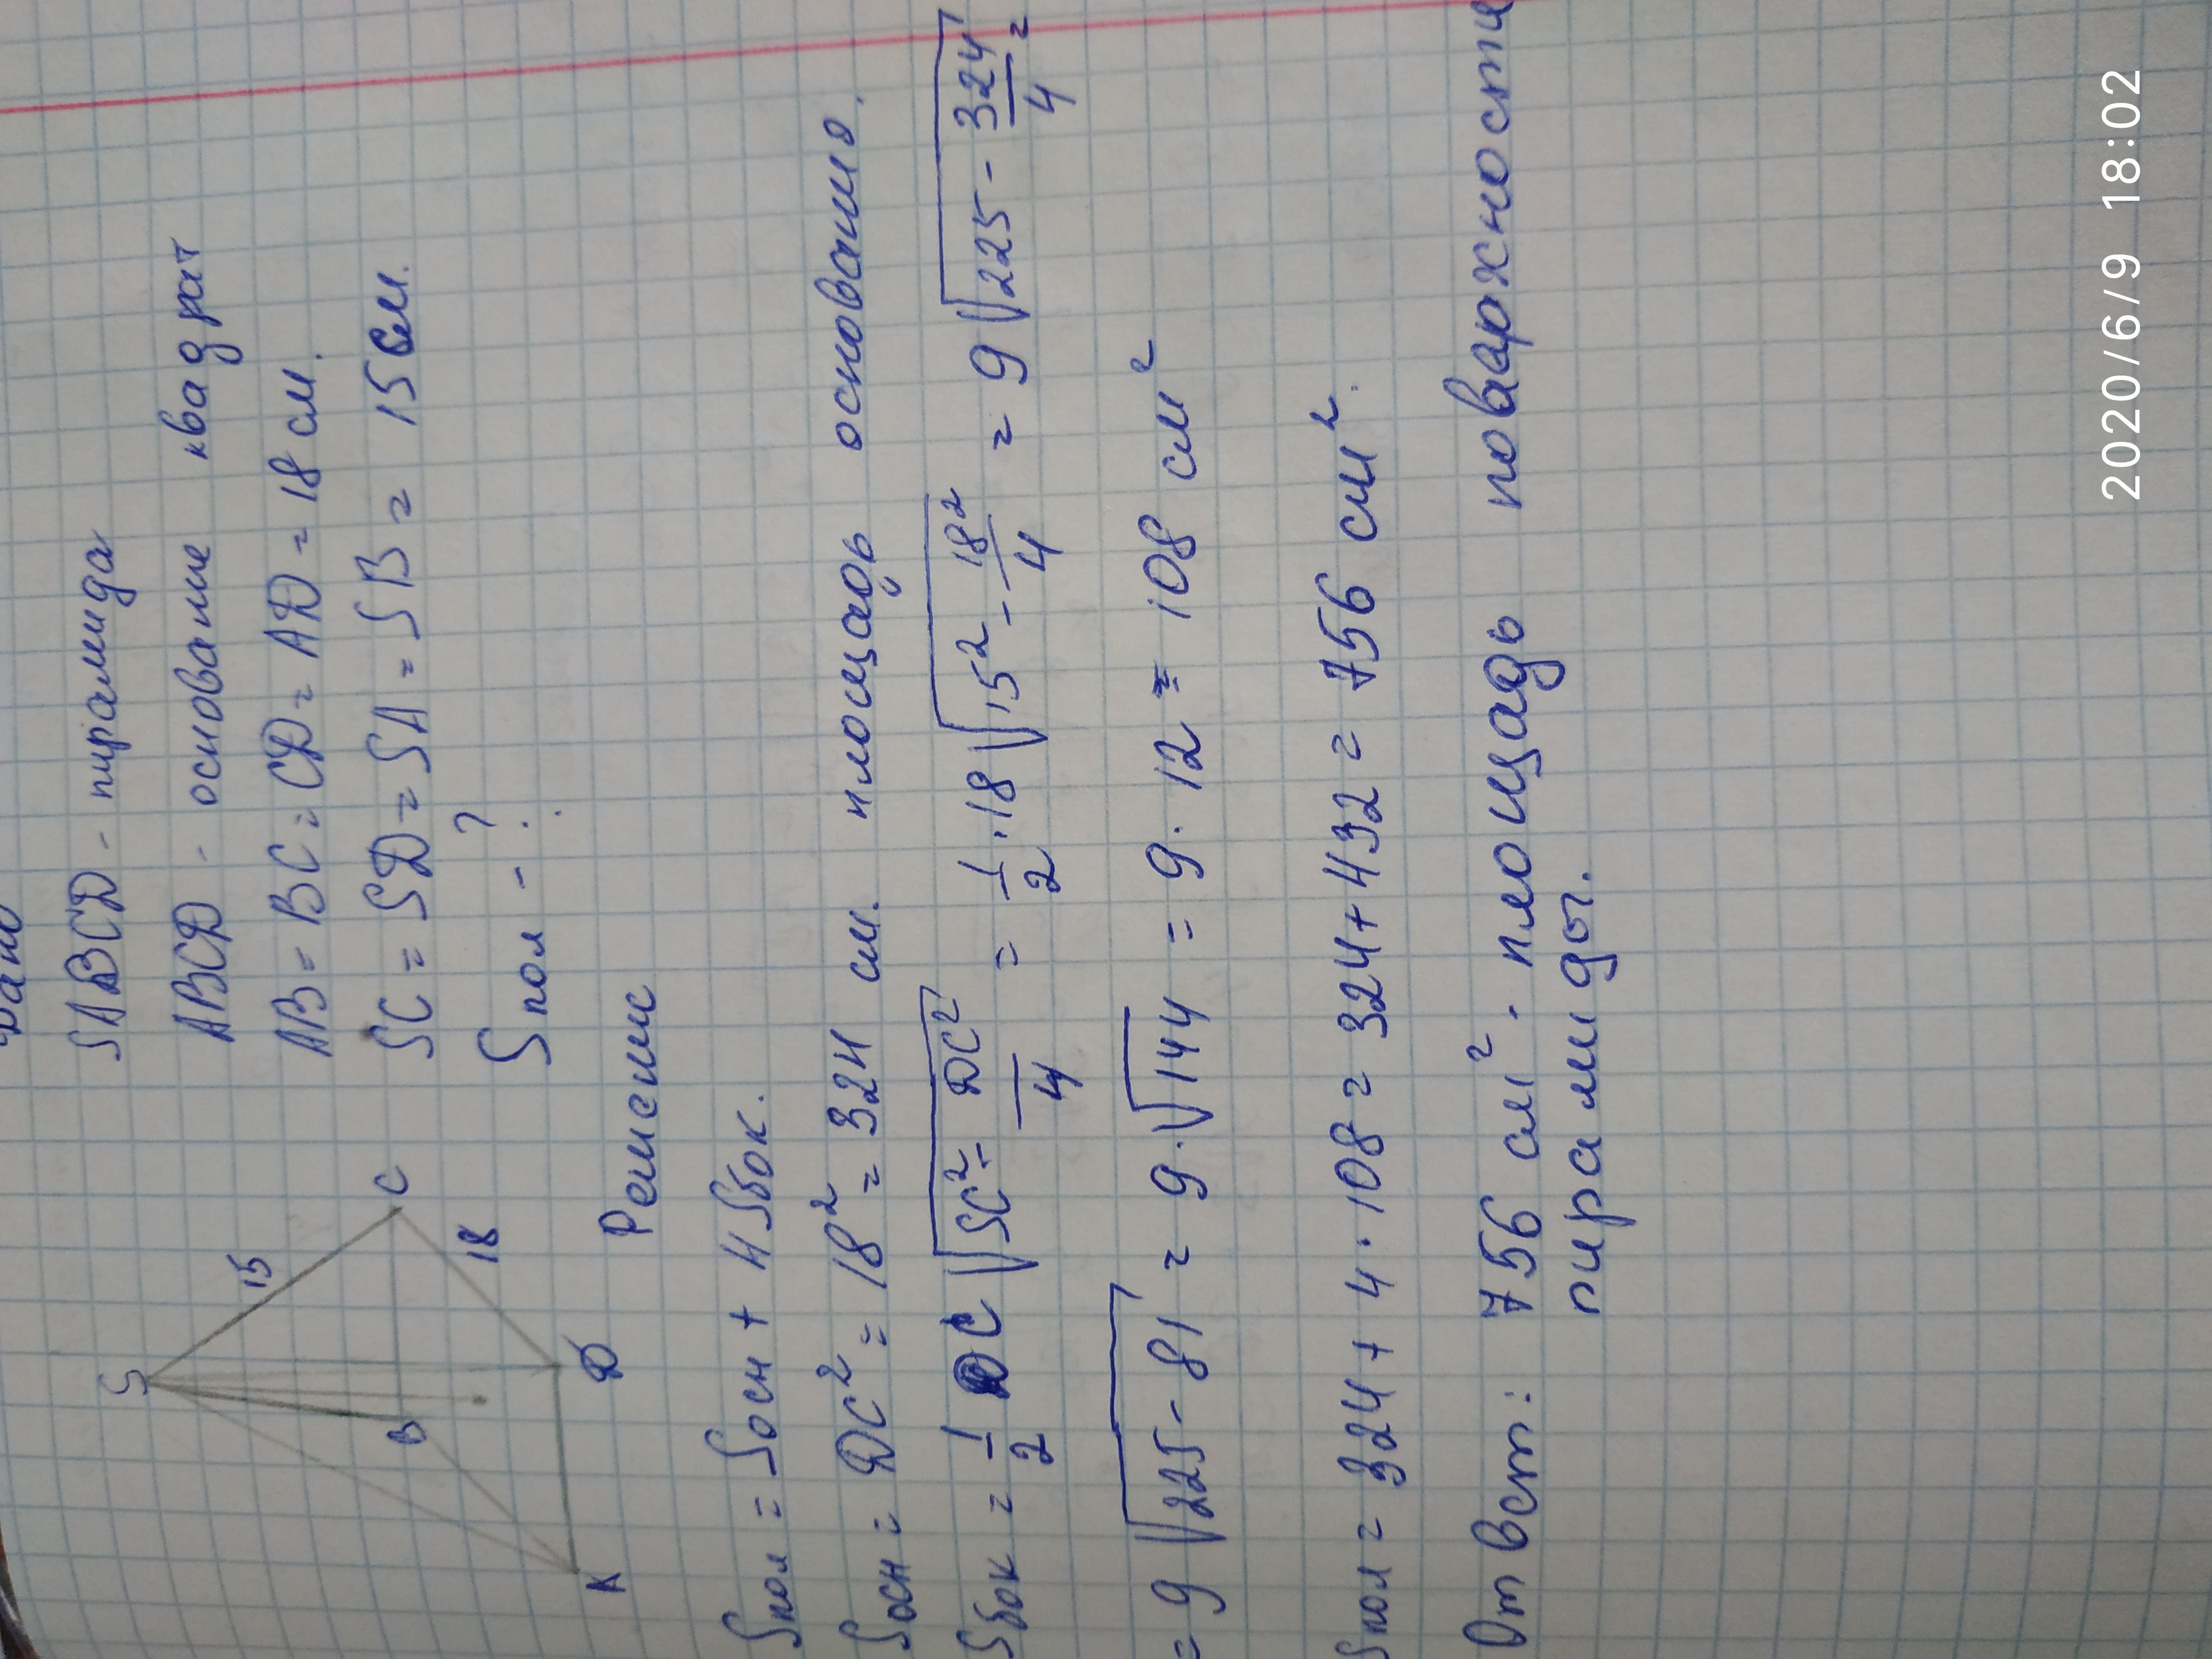 Дано
SABCD - пирамида
ABCD - основание квадрат
AB = BC = CD = AD = 18 см.
SC = SD = SA = SB = 15 см.
Sпол - ?
S
15
C
B
18
D
A
Решение
Sпол = Sосн + 4 Sбок.
Sосн = DC² = 18² = 324 см. площадь основанио.
Sбок = 1/2 DC √(SC² - DC²/4) = 1/2 · 18 √(15² - 18²/4) = 9 √(225 - 324/4) =
= 9 √(225 - 81) = 9 · √144 = 9 · 12 = 108 см²
Sпол = 324 + 4 · 108 = 324 + 432 = 756 см².
Ответ: 756 см². площадь повархности
пирамиды.
2020/6/9 18:02